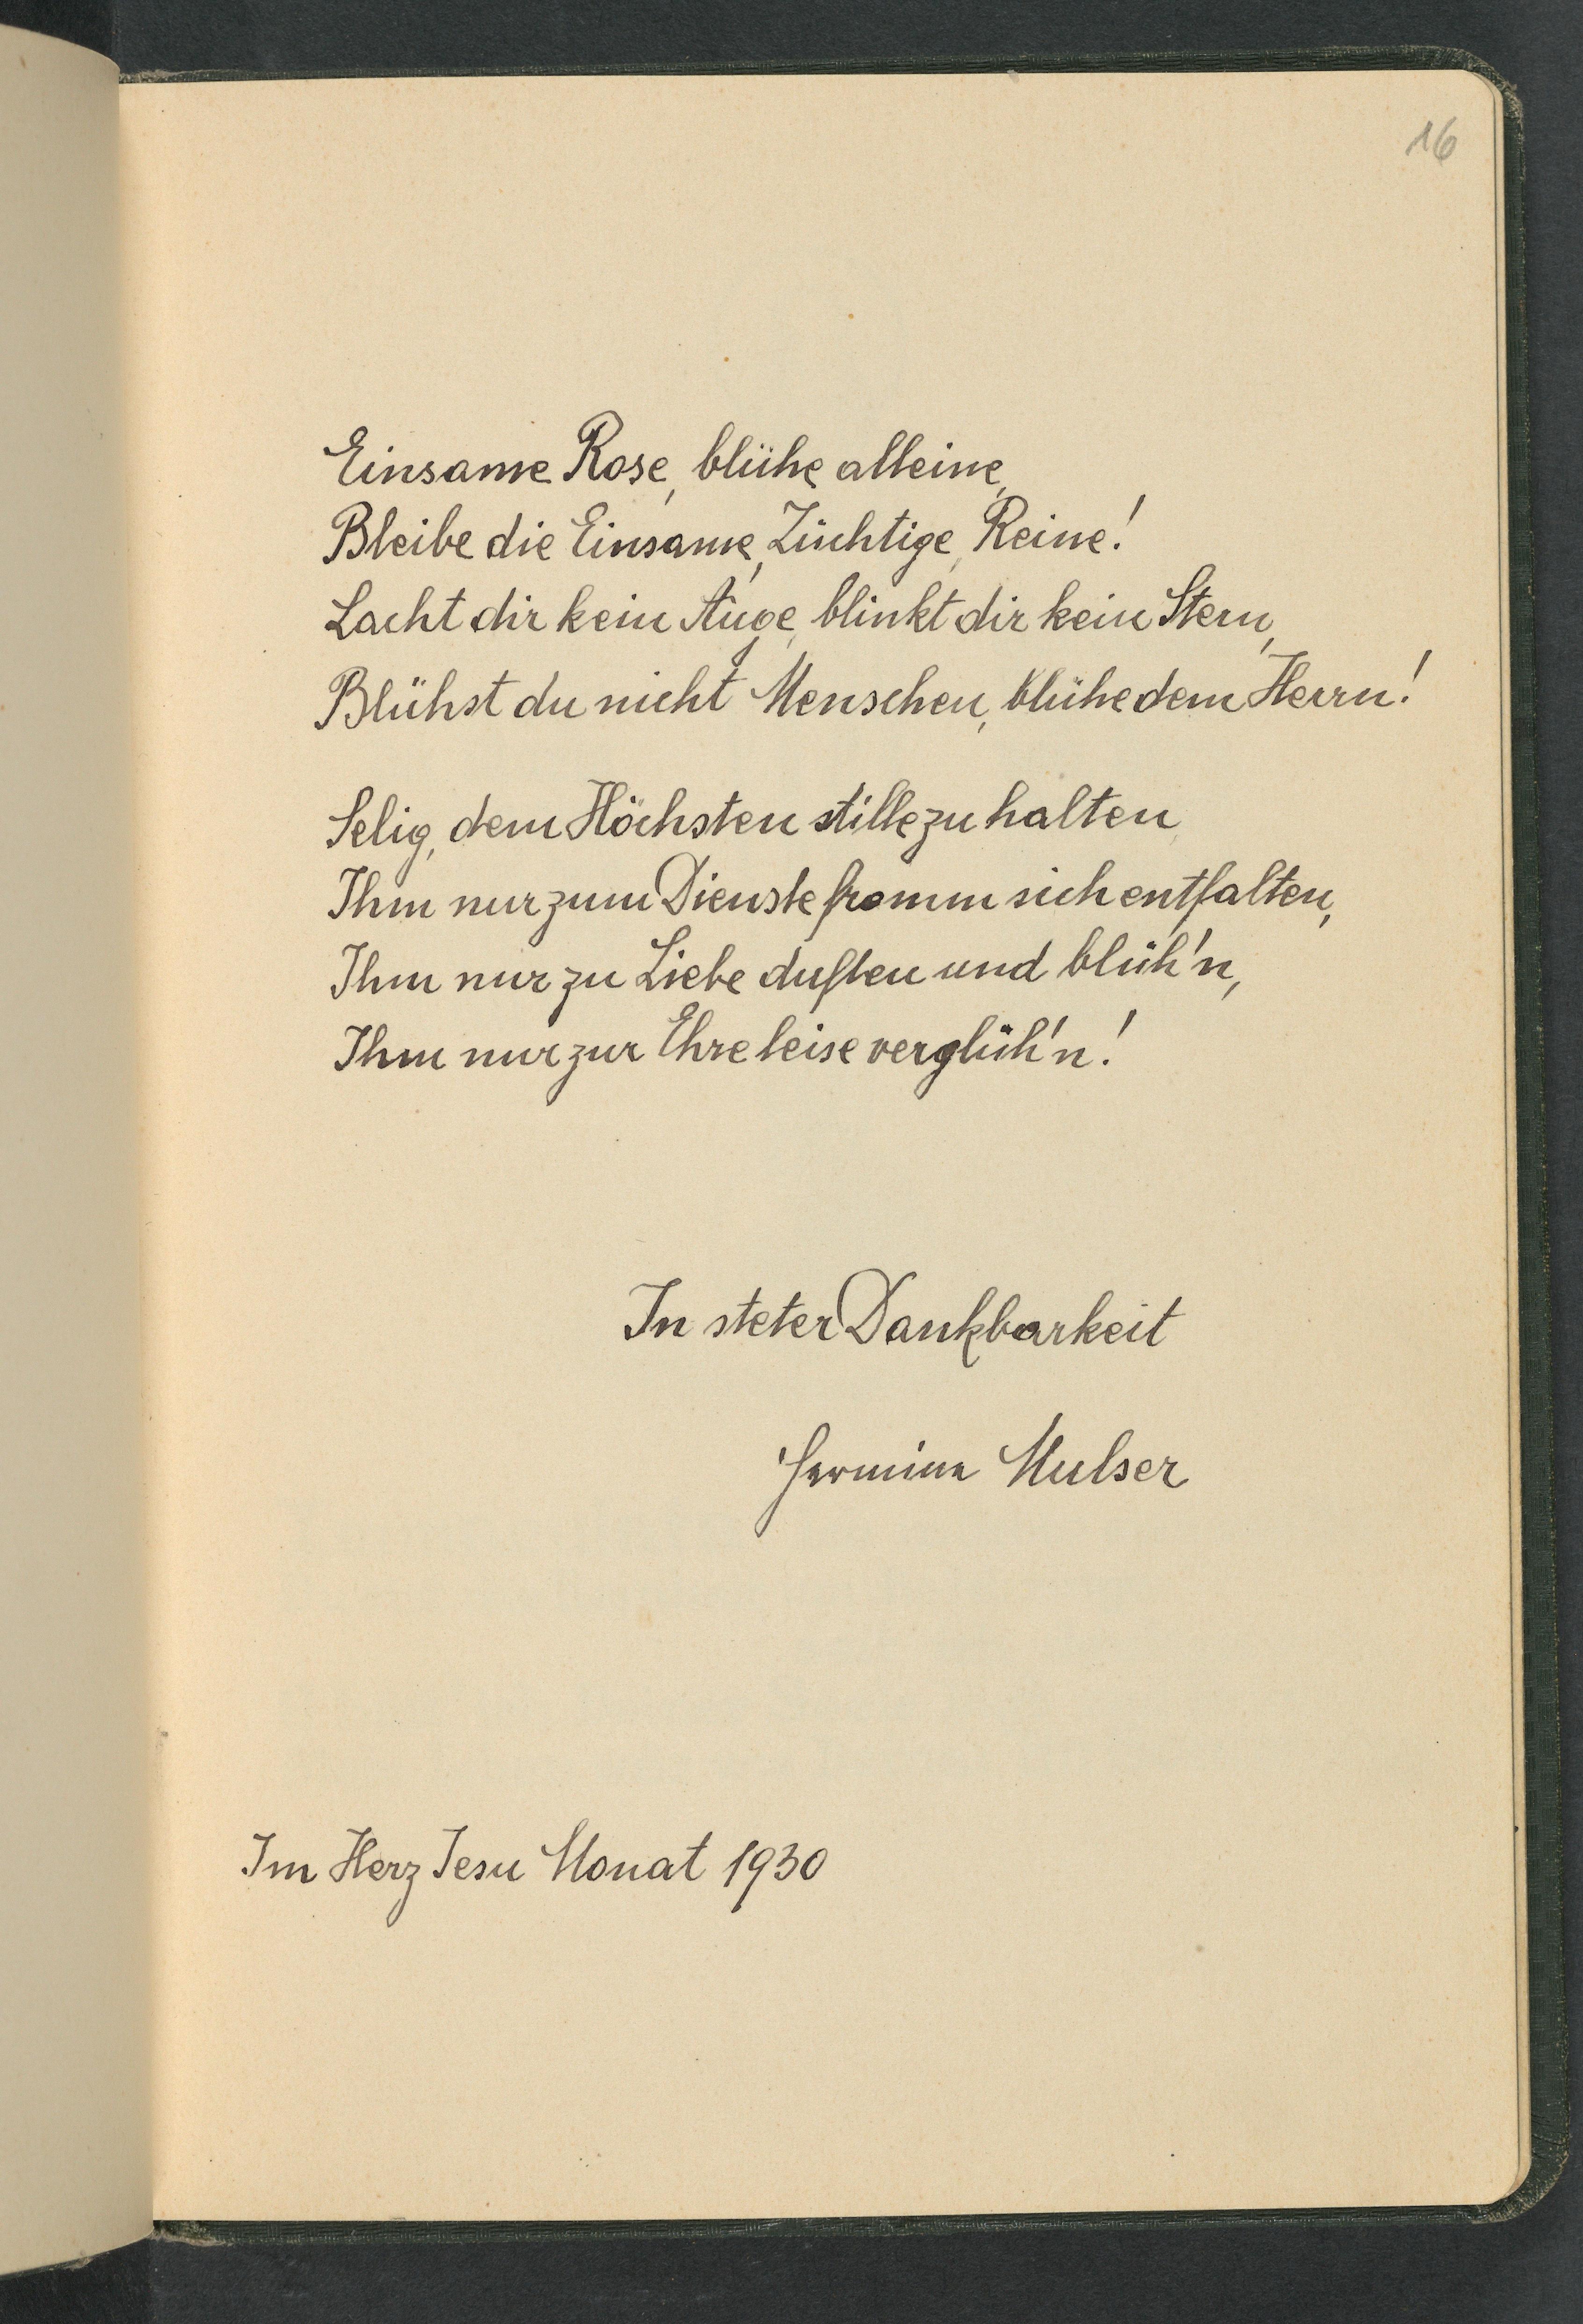 16
Einsame Rose, blühe alleine,
Bleibe die Einsame, Züchtige, Reine!
Lacht dir kein Auge, blinkt dir kein Stern,
Blühst du nicht Menschen, blühe dem Herrn!
Selig, dem Höchsten stille zu halten
Ihm nur zum Dienste fromm sich entfalten,
Ihm nur zu Liebe duften und blüh'n,
Ihm nur zur Ehre leise verglüh'n!
In steter Dankbarkeit
Hermine Mulser
Im Herz Jesu Monat 1930